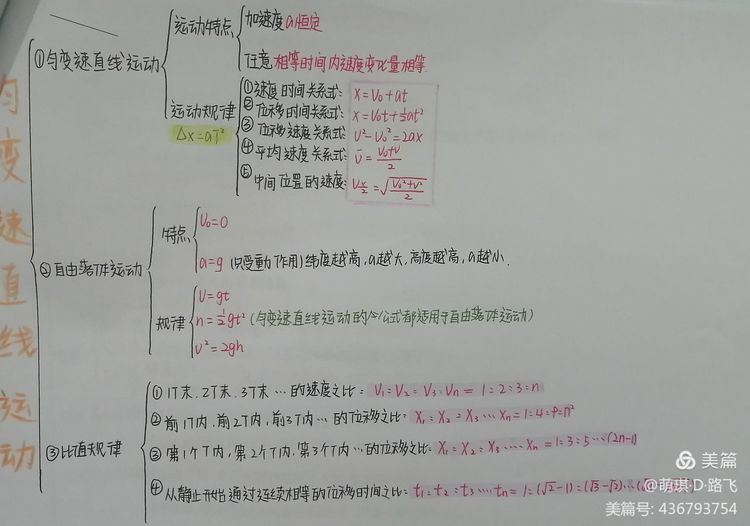 匀变速直线运动
①匀变速直线运动
运动特点
加速度a恒定
任意相等时间内速度变化量相等.
运动规律
△x=aT²
①速度时间关系式: x=v₀+at
②位移时间关系式: x=v₀t+½at²
③位移速度关系式: v²-v₀²=2ax
④平均速度关系式: v̄=(v₀+v)/2
⑤中间位置的速度: vx/2=√((v₀²+v²)/2)
②自由落体运动
特点
v₀=0
a=g (只受重力作用)纬度越高,a越大,高度越高,a越小.
规律
v=gt
h=½gt² (匀变速直线运动的公式都适用于自由落体运动)
v²=2gh
③比值规律
①1T末、2T末、3T末…的速度之比: v₁=v₂=v₃:vn=1:2:3=n
②前1T内、前2T内,前3T内…的位移之比: x₁=x₂=x₃…xn=1=4=9=n²
③第1个T内,第2个T内,第3个T内…的位移之比: x₁=x₂=x₃…xn=1=3=5…(2n-1)
④从静止开始通过连续相等的位移时间之比: t₁=t₂=t₃…tn=1=(√2-1)=(√3-√2)…
美篇
@萌琪·D·路飞
美篇号: 436793754